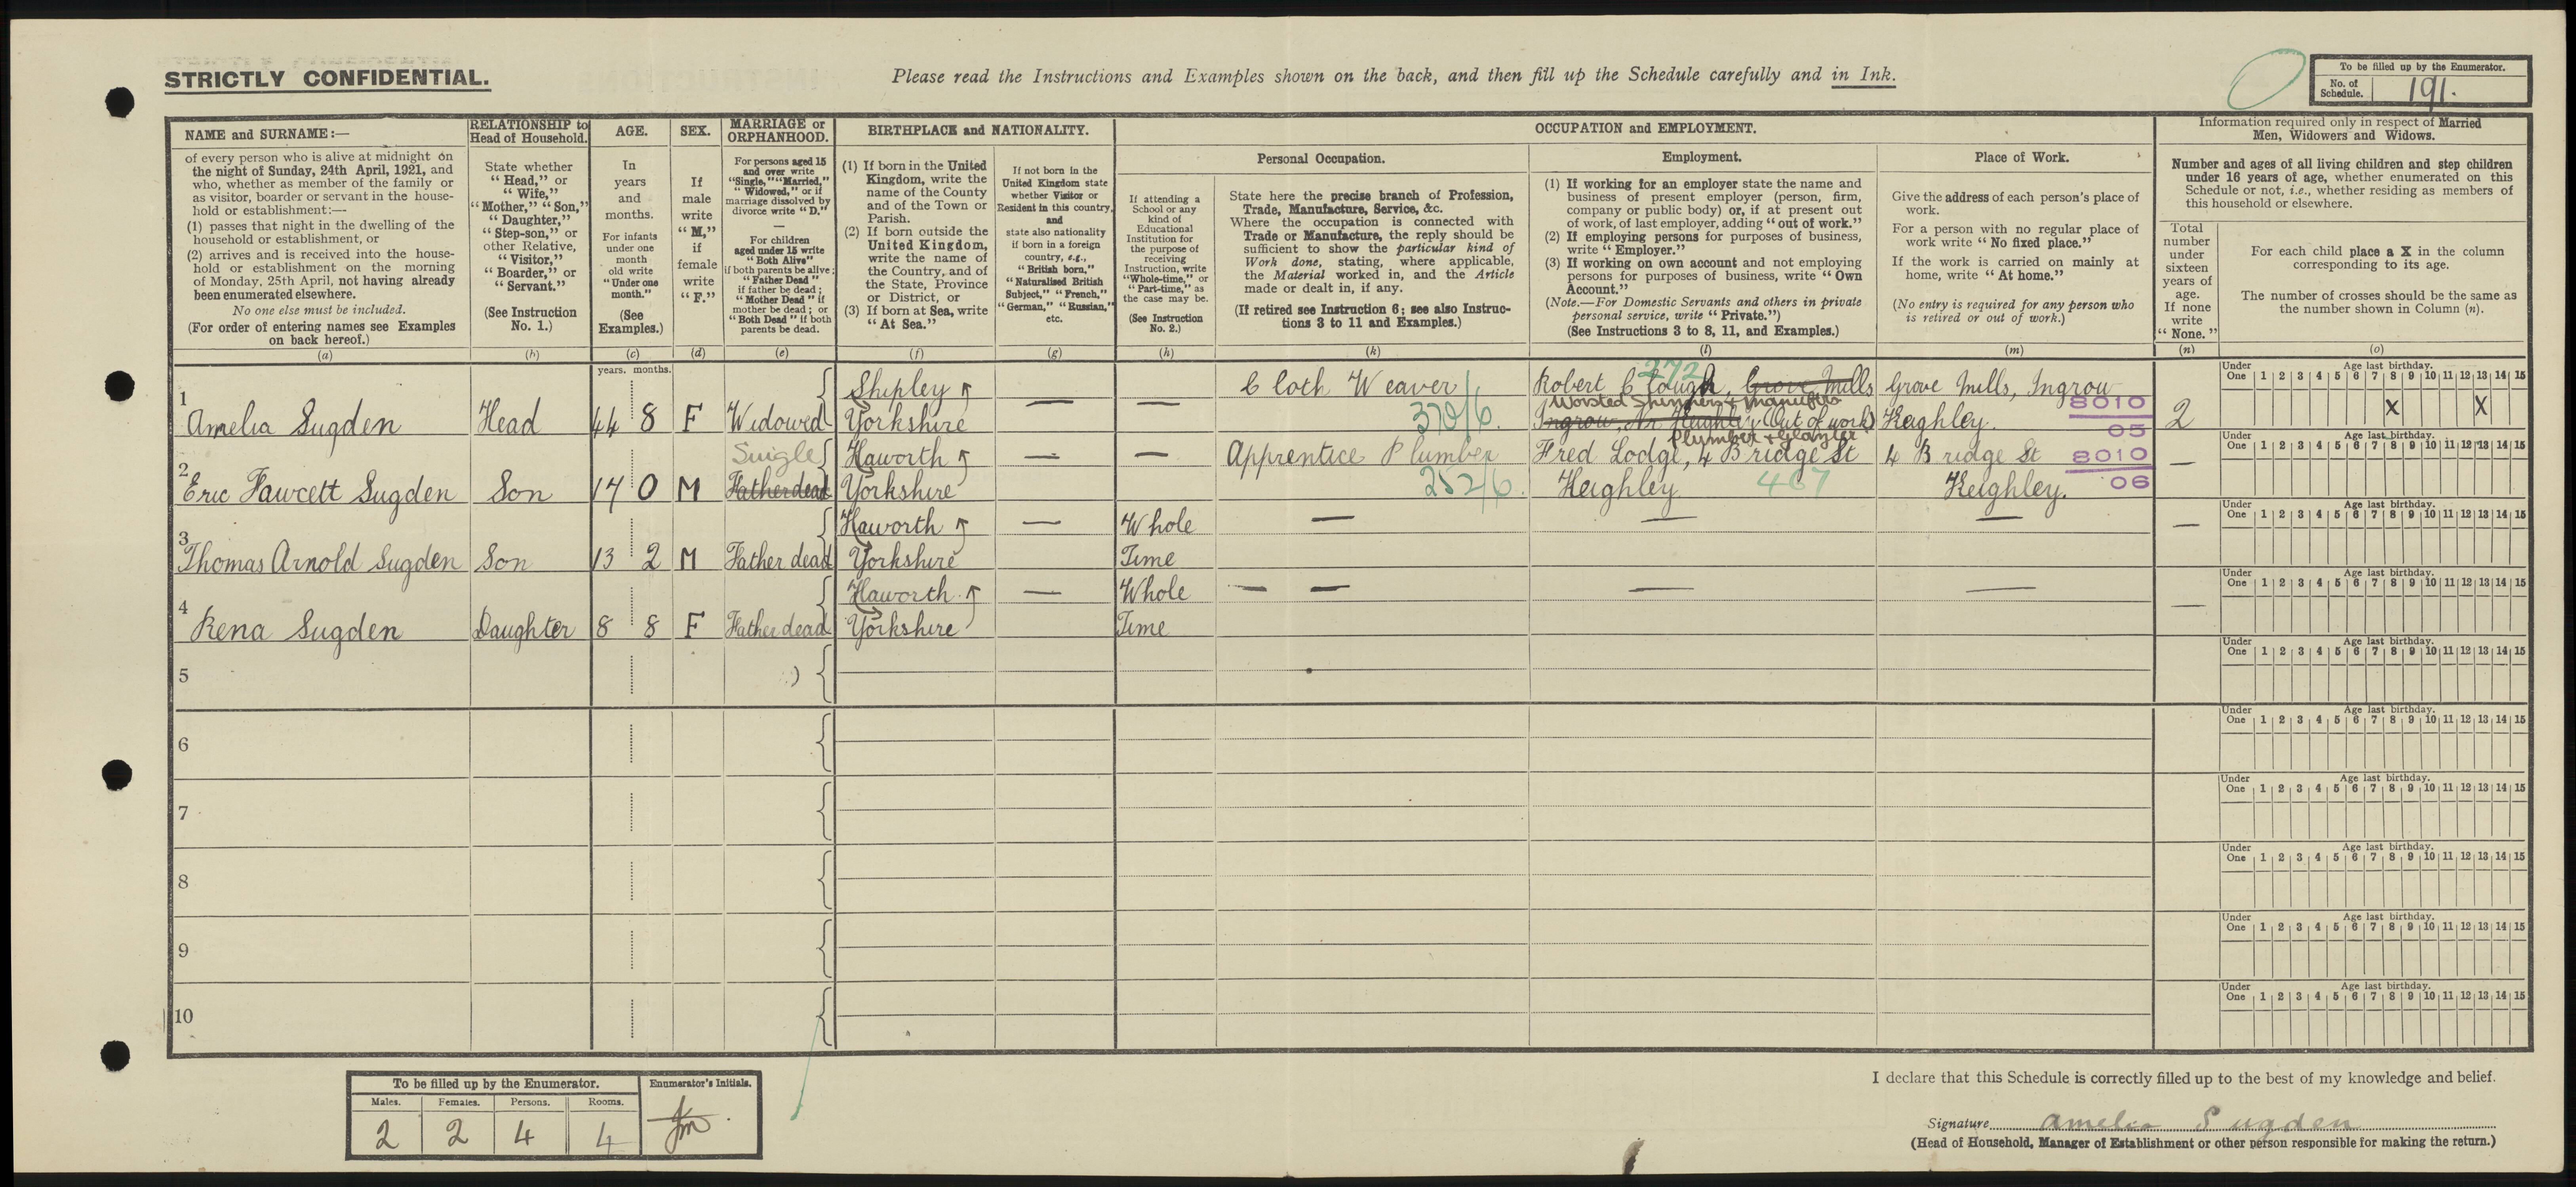 STRICTLY CONFIDENTIAL.
Please read the Instructions and Examples shown on the back, and then fill up the Schedule carefully and in Ink.
To be filled up by the Enumerator.
No. of Schedule. 191.
NAME and SURNAME:—
of every person who is alive at midnight on
the night of Sunday, 24th April, 1921, and
who, whether as member of the family or
as visitor, boarder or servant in the house-
hold or establishment:—
(1) passes that night in the dwelling of the
household or establishment, or
(2) arrives and is received into the house-
hold or establishment on the morning
of Monday, 25th April, not having already
been enumerated elsewhere.
No one else must be included.
(For order of entering names see Examples
on back hereof.)
(a)
RELATIONSHIP to
Head of Household.
State whether
"Head," or
"Wife,"
"Mother," "Son,"
"Daughter,"
"Step-son," or
other Relative,
"Visitor,"
"Boarder," or
"Servant."
(See Instruction
No. 1.)
(b)
AGE.
In
years
and
months.
For infants
under one
month
old write
"Under one
month."
(See
Examples.)
(c)
SEX.
If
male
write
"M,"
if
female
write
"F."
(d)
MARRIAGE or
ORPHANHOOD.
For persons aged 15
and over write
"Single," "Married,"
"Widowed," or if
marriage dissolved by
divorce write "D."
—
For children
aged under 15 write
"Both Alive"
if both parents be alive;
"Father Dead"
if father be dead;
"Mother Dead" if
mother be dead; or
"Both Dead" if both
parents be dead.
(e)
BIRTHPLACE and NATIONALITY.
(1) If born in the United
Kingdom, write the
name of the County
and of the Town or
Parish.
(2) If born outside the
United Kingdom,
write the name of
the Country, and of
the State, Province
or District, or
(3) If born at Sea, write
"At Sea."
(f)
If not born in the
United Kingdom state
whether Visitor or
Resident in this country,
and
state also nationality
if born in a foreign
country, e.g.,
"British born,"
"Naturalised British
Subject," "French,"
"German," "Russian,"
etc.
(g)
OCCUPATION and EMPLOYMENT.
Personal Occupation.
If attending a
School or any
kind of
Educational
Institution for
the purpose of
receiving
Instruction, write
"Whole-time," or
"Part-time," as
the case may be.
(See Instruction
No. 2.)
(h)
State here the precise branch of Profession,
Trade, Manufacture, Service, &c.
Where the occupation is connected with
Trade or Manufacture, the reply should be
sufficient to show the particular kind of
Work done, stating, where applicable,
the Material worked in, and the Article
made or dealt in, if any.
(If retired see Instruction 6; see also Instruc-
tions 3 to 11 and Examples.)
(k)
Employment.
(1) If working for an employer state the name and
business of present employer (person, firm,
company or public body) or, if at present out
of work, of last employer, adding "out of work."
(2) If employing persons for purposes of business,
write "Employer."
(3) If working on own account and not employing
persons for purposes of business, write "Own
Account."
(Note.—For Domestic Servants and others in private
personal service, write "Private.")
(See Instructions 3 to 8, 11, and Examples.)
(l)
Place of Work.
Give the address of each person's place of
work.
For a person with no regular place of
work write "No fixed place."
If the work is carried on mainly at
home, write "At home."
(No entry is required for any person who
is retired or out of work.)
(m)
Information required only in respect of Married
Men, Widowers and Widows.
Number and ages of all living children and step children
under 16 years of age, whether enumerated on this
Schedule or not, i.e., whether residing as members of
this household or elsewhere.
Total
number
under
sixteen
years of
age.
If none
write
"None."
(n)
For each child place a X in the column
corresponding to its age.
The number of crosses should be the same as
the number shown in Column (n).
(o)
years. months.
Under One Age last birthday. 1 2 3 4 5 6 7 8 9 10 11 12 13 14 15
1 Amelia Sugden Head 44 8 F Widowed Shipley Yorkshire — — Cloth Weaver 370/6. 272 Robert Clough, Grove Mills
Worsted Spinners & Manufrs
Ingrow, Nr Keighley (Out of work) Grove Mills, Ingrow Keighley. 8010 05 2 X X
Under One Age last birthday. 1 2 3 4 5 6 7 8 9 10 11 12 13 14 15
2 Eric Fawcett Sugden Son 17 0 M Single Father dead Haworth Yorkshire — — Apprentice Plumber 252/6. Plumber & Glazier
Fred Lodge, 4 Bridge St Keighley 467 4 Bridge St Keighley. 8010 06 —
Under One Age last birthday. 1 2 3 4 5 6 7 8 9 10 11 12 13 14 15
3 Thomas Arnold Sugden Son 13 2 M Father dead Haworth Yorkshire — Whole Time — — — —
Under One Age last birthday. 1 2 3 4 5 6 7 8 9 10 11 12 13 14 15
4 Rena Sugden Daughter 8 8 F Father dead Haworth Yorkshire — Whole Time — — — — —
Under One Age last birthday. 1 2 3 4 5 6 7 8 9 10 11 12 13 14 15
5
Under One Age last birthday. 1 2 3 4 5 6 7 8 9 10 11 12 13 14 15
6
Under One Age last birthday. 1 2 3 4 5 6 7 8 9 10 11 12 13 14 15
7
Under One Age last birthday. 1 2 3 4 5 6 7 8 9 10 11 12 13 14 15
8
Under One Age last birthday. 1 2 3 4 5 6 7 8 9 10 11 12 13 14 15
9
Under One Age last birthday. 1 2 3 4 5 6 7 8 9 10 11 12 13 14 15
10
Under One Age last birthday. 1 2 3 4 5 6 7 8 9 10 11 12 13 14 15
To be filled up by the Enumerator. Enumerator's Initials.
Males. Females. Persons. Rooms.
2 2 4 4
I declare that this Schedule is correctly filled up to the best of my knowledge and belief.
Signature Amelia Sugden
(Head of Household, Manager of Establishment or other person responsible for making the return.)